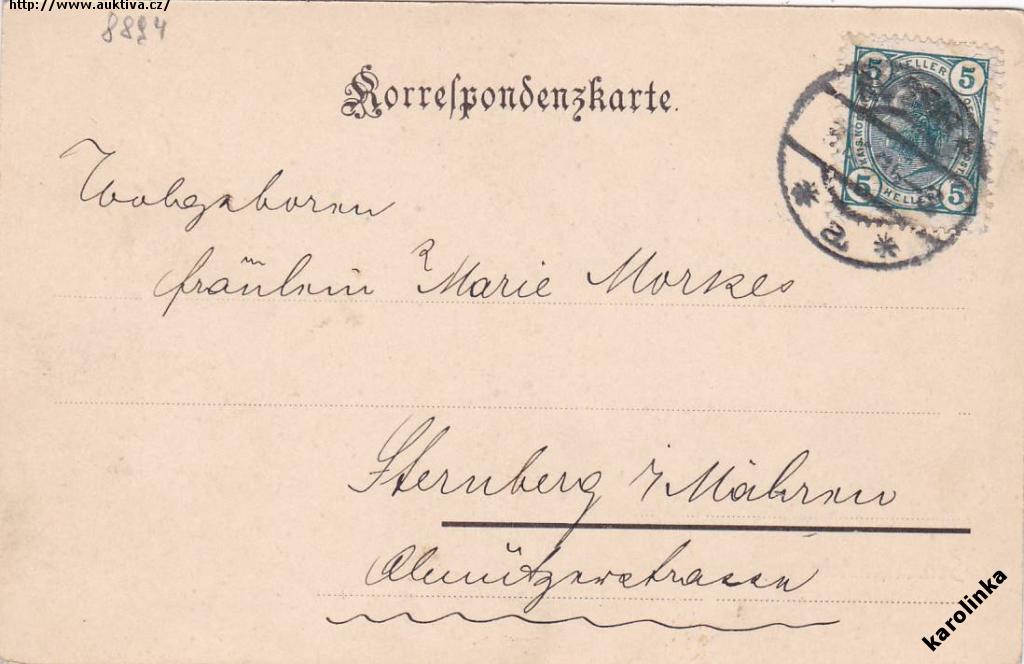 http://www.auktiva.cz/
8824
Korrespondenzkarte.
5 HELLER 5
5 HELLER 5
Wohgeboren
fräulein Marie Morkes
Sternberg i/ Mähren
Olmützerstrasse
karolinka